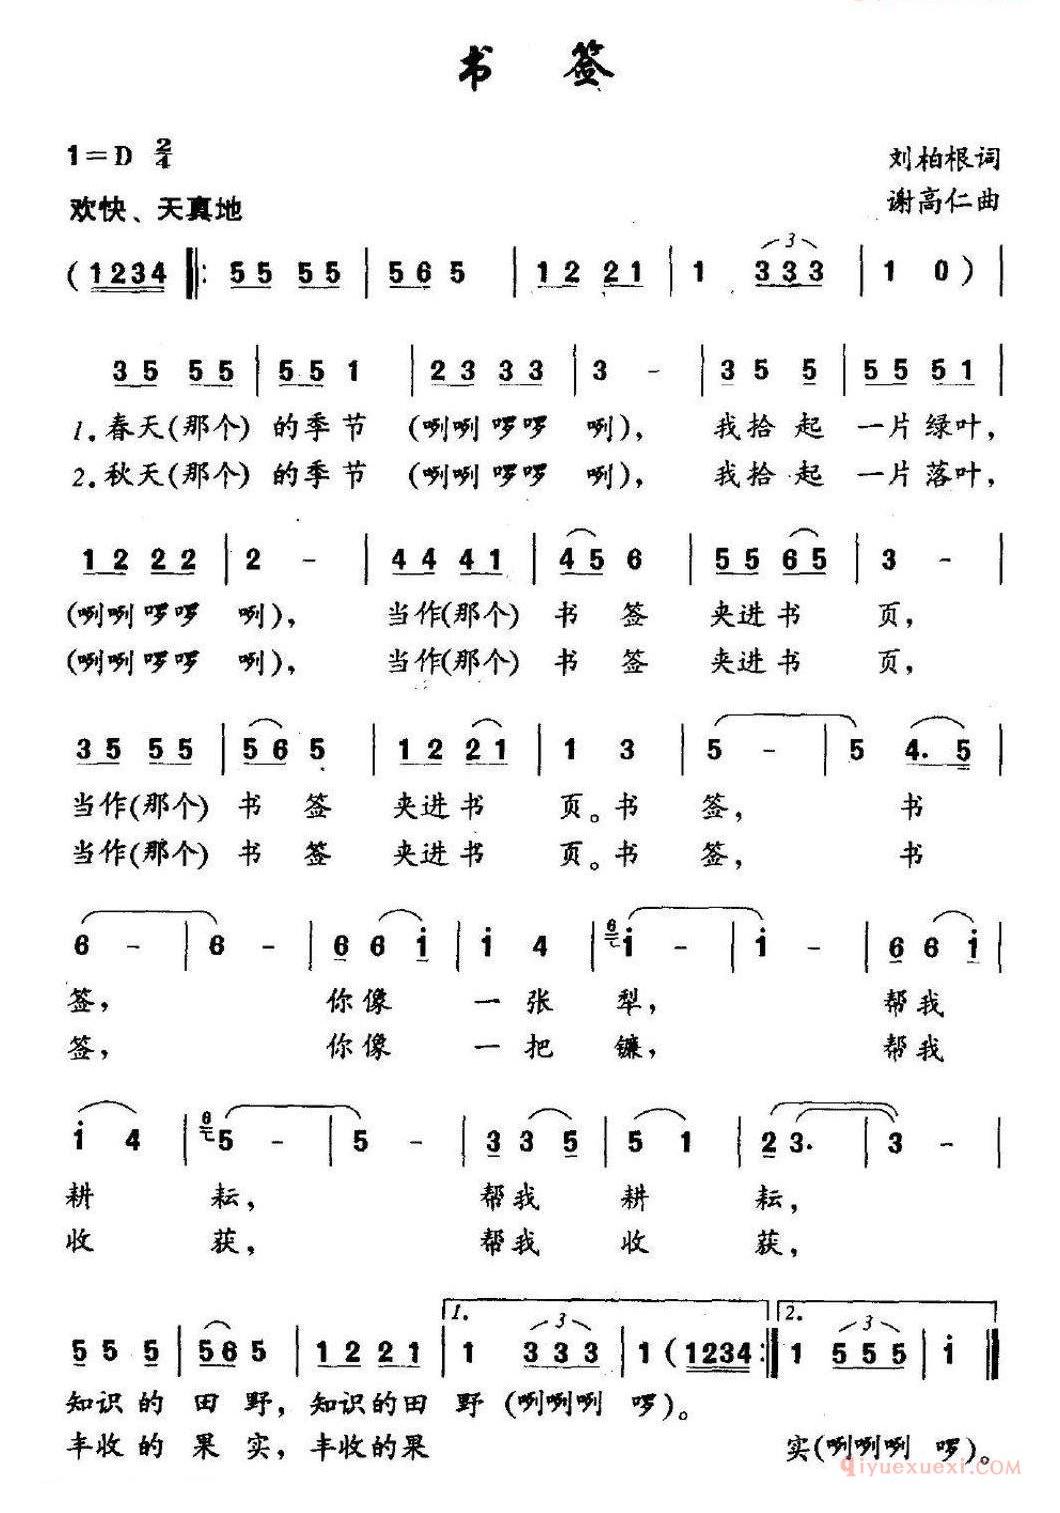 书 签
1=D 2/4
刘柏根词
欢快、天真地
谢高仁曲
(1234 ‖: 55 55 | 56 5 | 12 21 | 1 333 | 1 0) |
35 55 | 55 1 | 23 33 | 3 - | 3 5 5 | 55 51 |
1.春天(那个) 的季节 (咧咧 啰啰 咧), 我拾 起 一片 绿叶,
2.秋天(那个) 的季节 (咧咧 啰啰 咧), 我拾 起 一片 落叶,
12 22 | 2 - | 44 41 | 45 6 | 55 65 | 3 - |
(咧咧 啰啰 咧), 当作(那个) 书 签 夹进 书 页,
(咧咧 啰啰 咧), 当作(那个) 书 签 夹进 书 页,
35 55 | 56 5 | 12 21 | 1 3 | 5 - | 5 4.5 |
当作(那个) 书 签 夹进 书 页。书 签, 书
当作(那个) 书 签 夹进 书 页。书 签, 书
6 - | 6 - | 6 6 i | i 4 | 6 i - | i - | 6 6 i |
签, 你像 一 张 犁, 帮我
签, 你像 一 把 镰, 帮我
i 4 | 6 5 - | 5 - | 3 3 5 | 5 1 | 2 3. | 3 - |
耕 耘, 帮我 耕 耘,
收 获, 帮我 收 获,
5 5 5 | 56 5 | 12 21 | 1. 1 333 | 1 (1234 :‖ 2. 1 555 | i ‖
知识 的 田 野, 知识的田 野 (咧咧咧 啰)。
丰收 的 果 实, 丰收的果 实(咧咧咧 啰)。
qiyuexuexi.COM